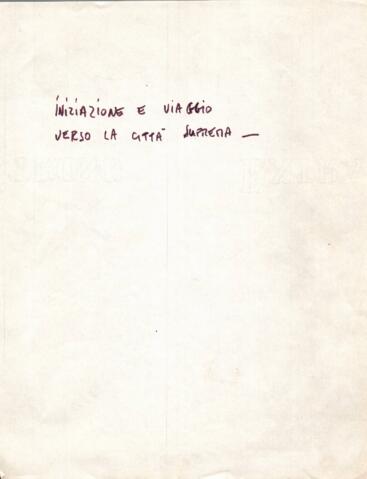 INIZIAZIONE E VIAGGIO
VERSO LA CITTÀ SUPREMA —